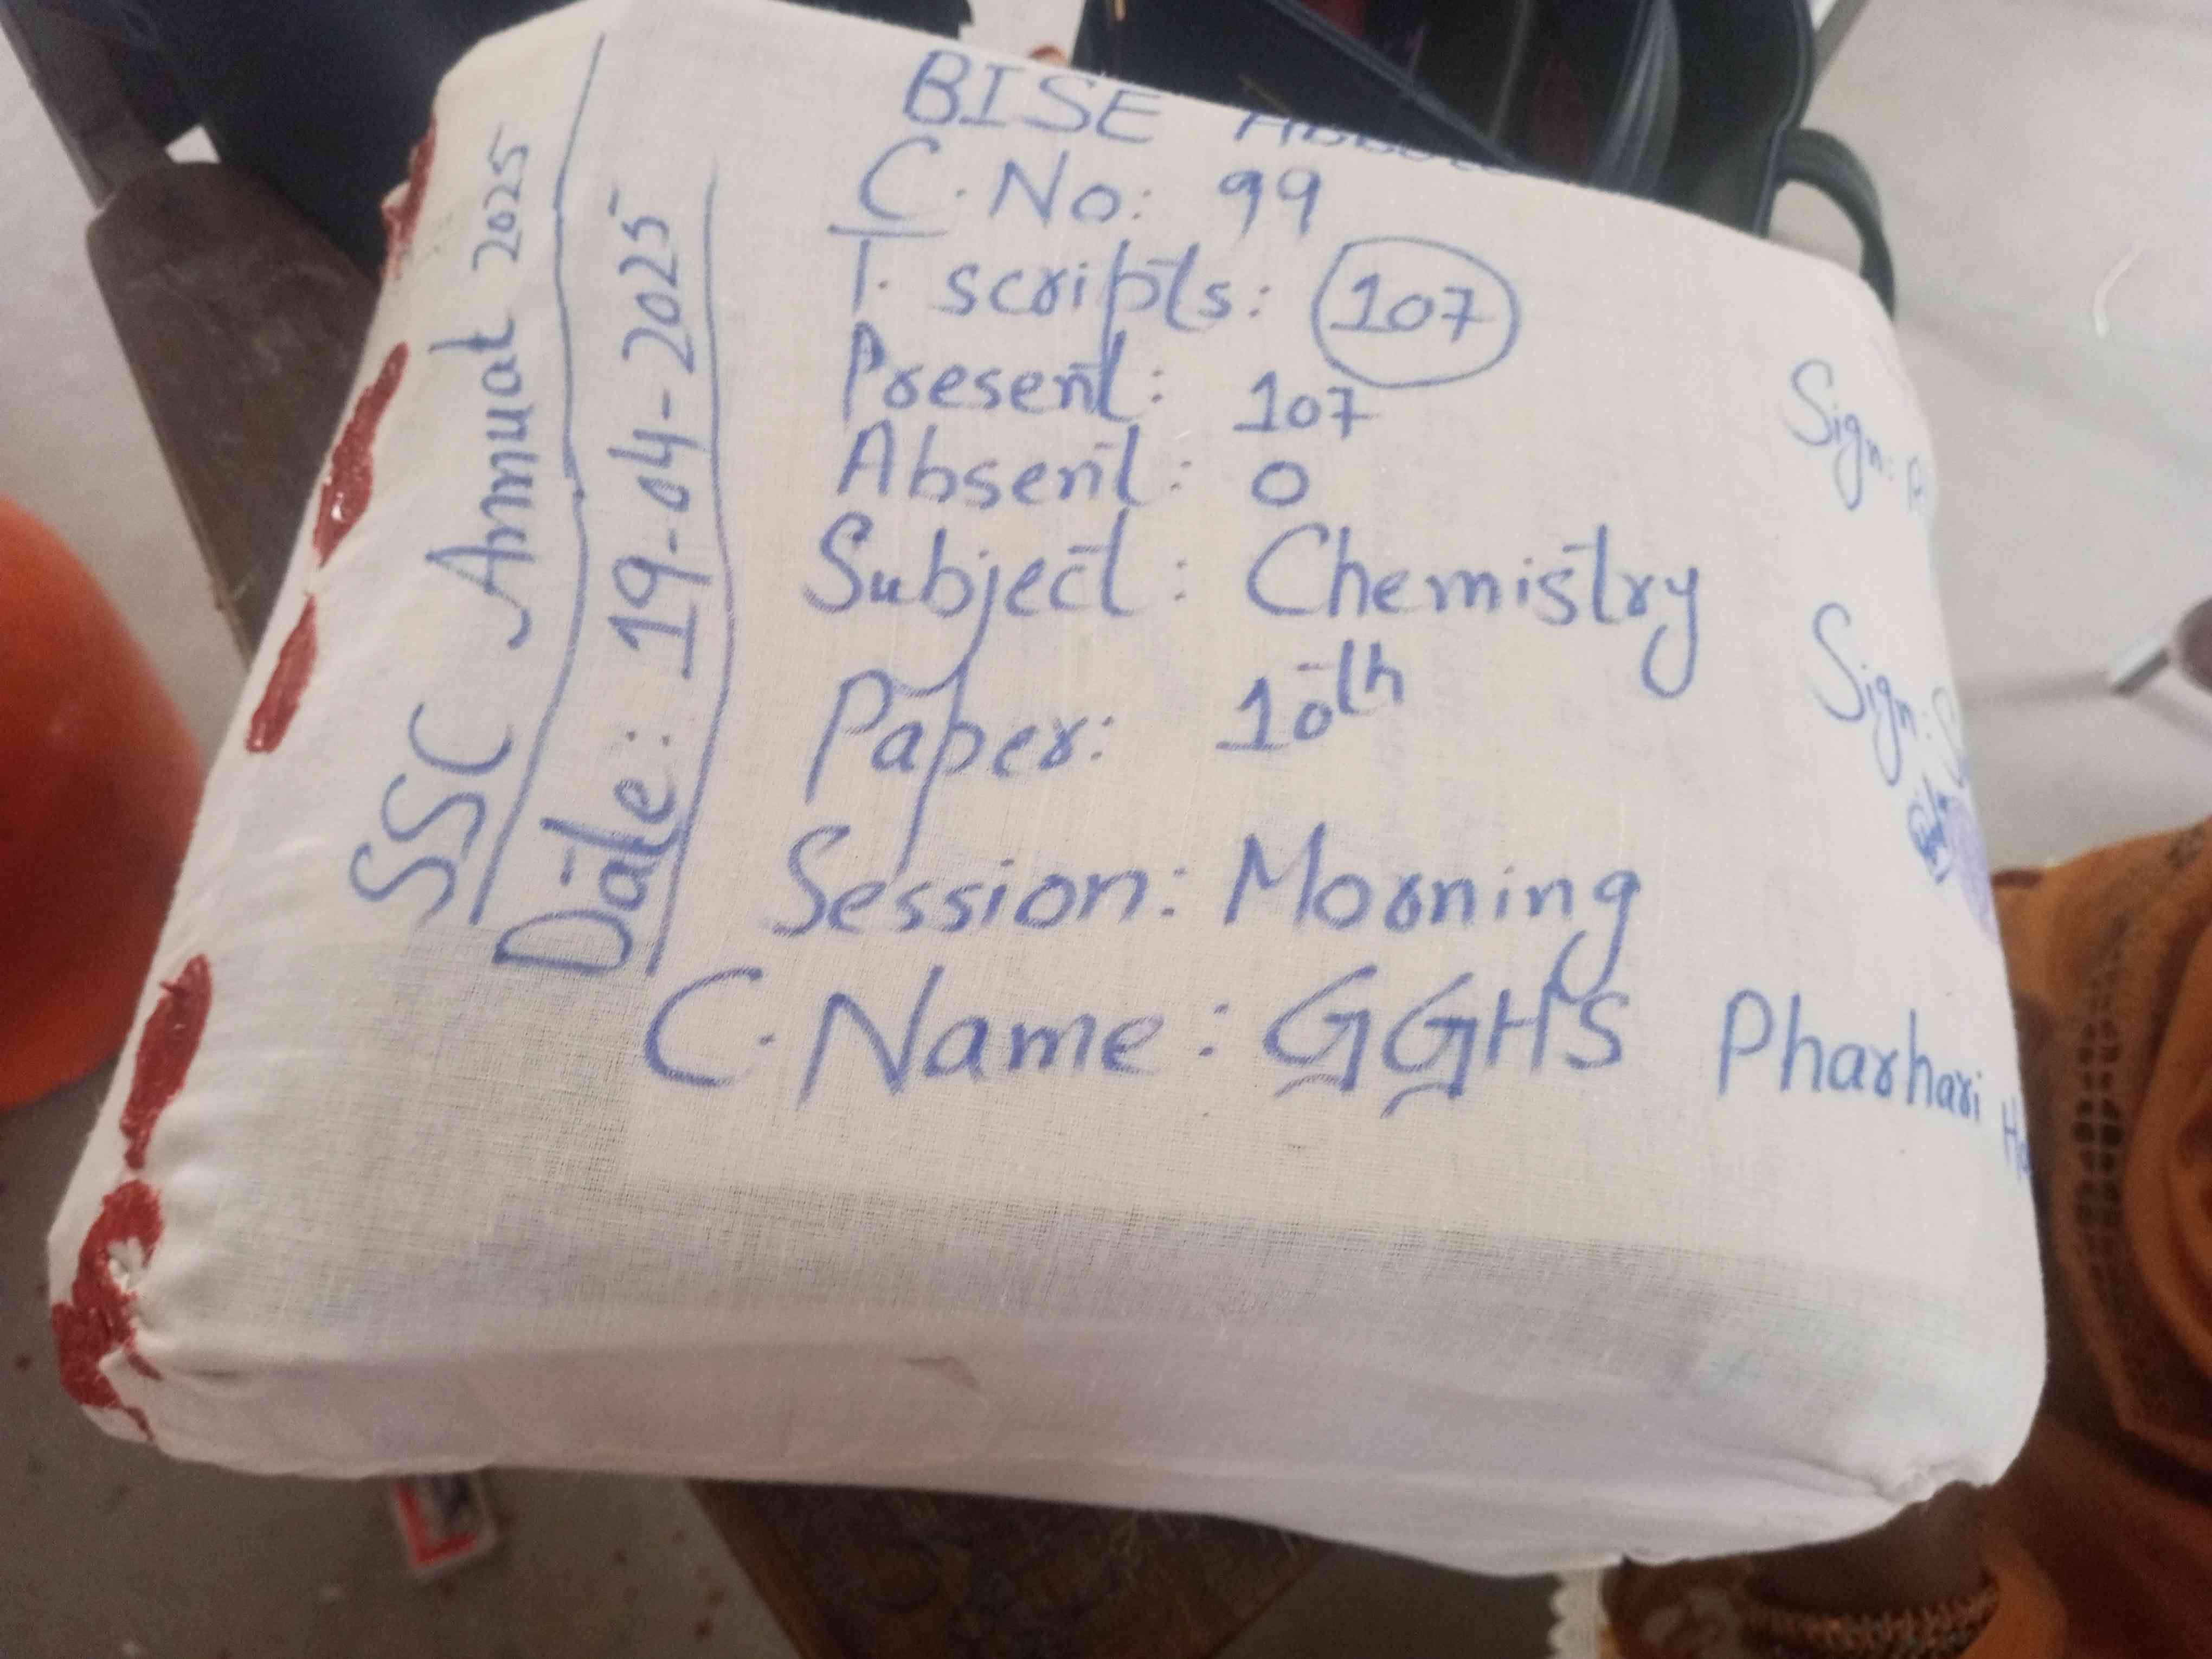 BISE
C. No: 99
T. scripts: 107
Present: 107
Absent: 0
Subject: Chemistry
Paper: 10th
Session: Morning
C. Name: GGHS Pharhari
SSC Annual 2025
Date: 19-04-2025
Sign:
Sign: